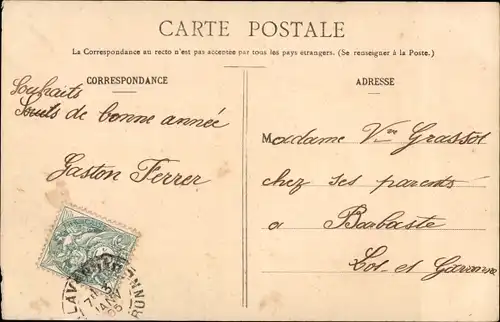 CARTE POSTALE
La Correspondance au recto n'est pas acceptée par tous les pays étrangers. (Se renseigner à la Poste.)
CORRESPONDANCE
ADRESSE
Souhaits
de bonne année
Gaston Ferrer
Madame Vve Grassot
chez ses parents
a Barbaste
Lot-et Garonne